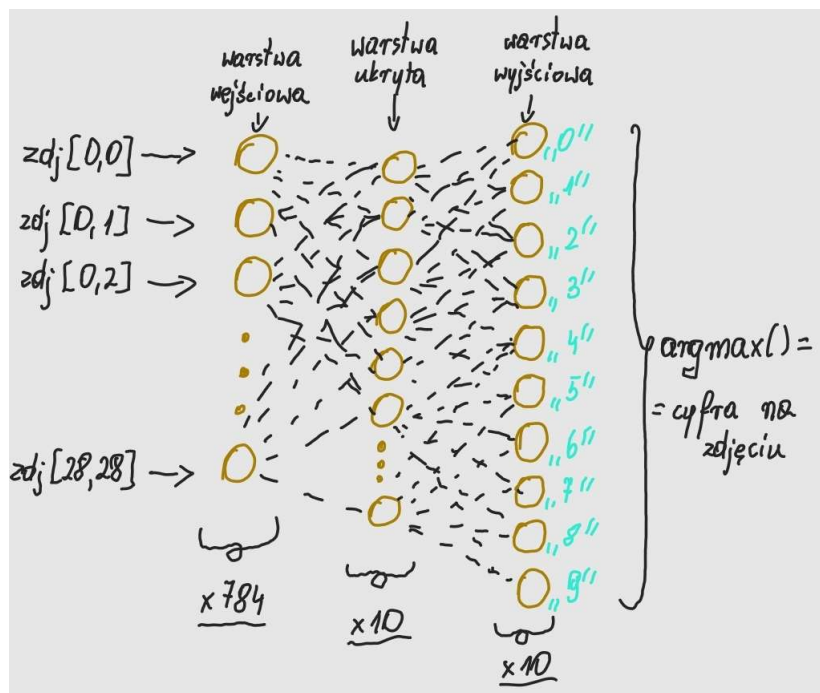 warstwa
wejściowa
warstwa
ukryta
warstwa
wyjściowa
zdj[0,0]
zdj[0,1]
zdj[0,2]
zdj[28,28]
„0”
„1”
„2”
„3”
„4”
„5”
„6”
„7”
„8”
„9”
argmax() =
= cyfra na
zdjęciu
x784
x10
x10